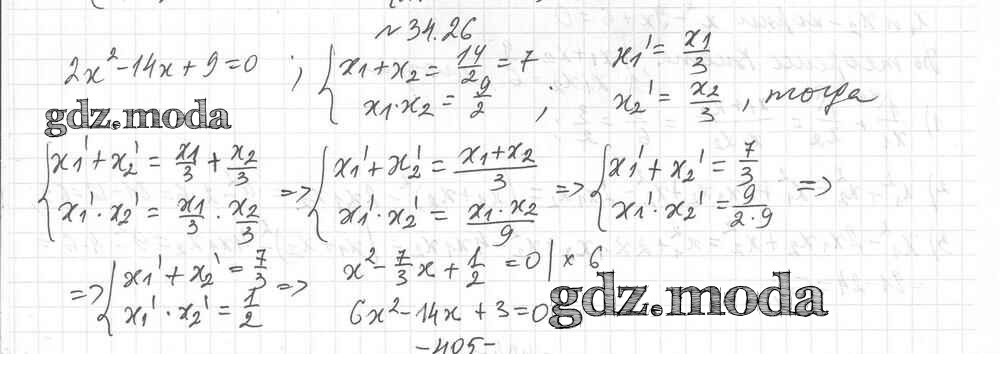 № 34.26
2x² - 14x + 9 = 0 ; { x₁ + x₂ = 14/2 = 7 x₁' = x₁/3
x₁ · x₂ = 9/2 ; x₂' = x₂/3 , тогда
gdz.moda
{ x₁' + x₂' = x₁/3 + x₂/3 => { x₁' + x₂' = (x₁ + x₂)/3 => { x₁' + x₂' = 7/3 =>
x₁' · x₂' = x₁/3 · x₂/3 x₁' · x₂' = (x₁ · x₂)/9 x₁' · x₂' = 9/(2·9)
=> { x₁' + x₂' = 7/3 => x² - 7/3 x + 1/2 = 0 | × 6
x₁' · x₂' = 1/2 6x² - 14x + 3 = 0
gdz.moda
-405-